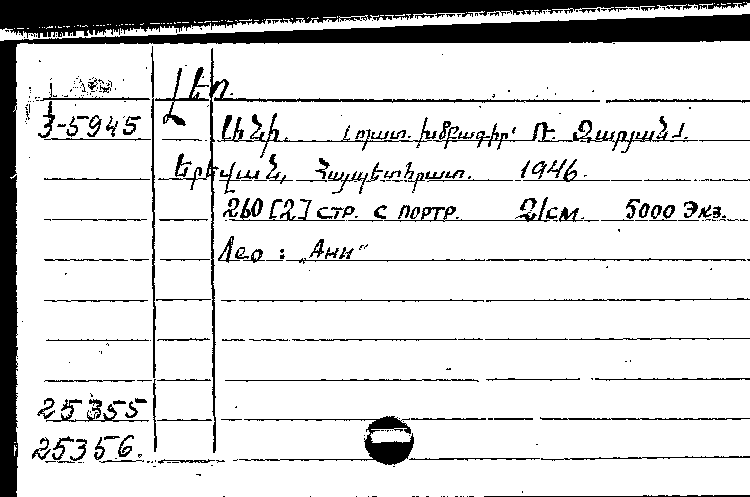 Лео
Լեո.
3-5945
Անի. (պատ. խմբագիր՝ Ռ. Զարյան).
Երեվան, Հայպետհրատ. 1946.
260 [2] стр. с портр. 21см. 5000 Экз.
Лео : „Ани“
25355
25356.